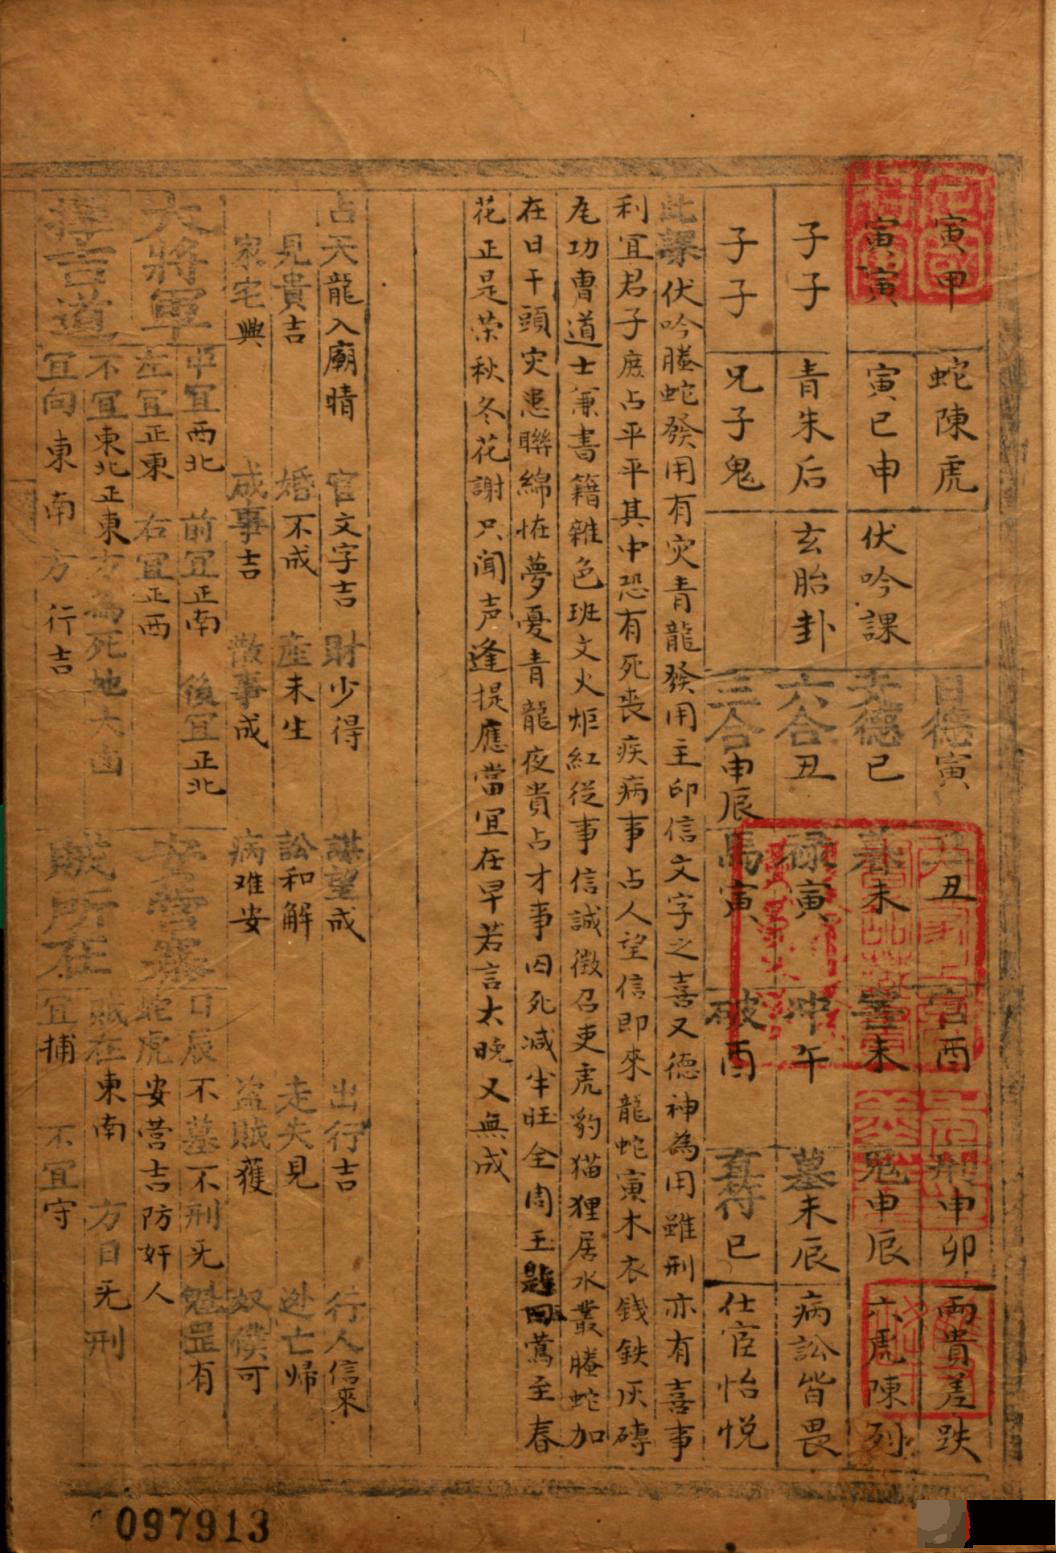 寅甲 蛇陳虎 日德寅 丑 酉 刑申卯 兩貴差跌
寅寅 寅巳申 伏吟課 天德巳 墓未 害未 鬼申辰 六虎陳列
子子 青朱后 玄胎卦 六合丑 祿寅 冲午 墓未辰 病訟皆畏
子子 兄子鬼 三合申辰 馬寅 破酉 直符巳 仕宦怡悅
此課伏吟螣蛇發用有灾青龍發用主印信文字之喜又德神為用雖刑亦有喜事
利宜君子庶占平平其中恐有死丧疾病事占人望信即來龍蛇寅木衣錢鉄灰磚
尨功曹道士兼書籍雜色班文火炬紅從事信誠徵召吏虎豹猫狸居水叢螣蛇加
在日干頭灾患聯綿恠夢憂青龍夜貴占才事囚死减半旺全周王鶯至春
花正是荣秋冬花謝只闻声逢提應當宜在早若言太晚又無成
占天龍入廟晴 官文字吉 財少得 謀望成 出行吉 行人信來
見貴吉 婚不成 產未生 訟和解 走失見 逃亡帰
家宅興 成事吉 散事成 病难安 盗賊獲 奴僕可
大將軍 中宜西北 前宜正南 後宜正北
左宜正東 右宜正西
安營寨 日辰不墓不刑旡魁罡有
蛇虎安营吉防奸人
擇吉道 不宜東北正東方為死地大凶
宜向東南方行吉
賊所在 賊在東南方日旡刑
宜捕 不宜守
097913